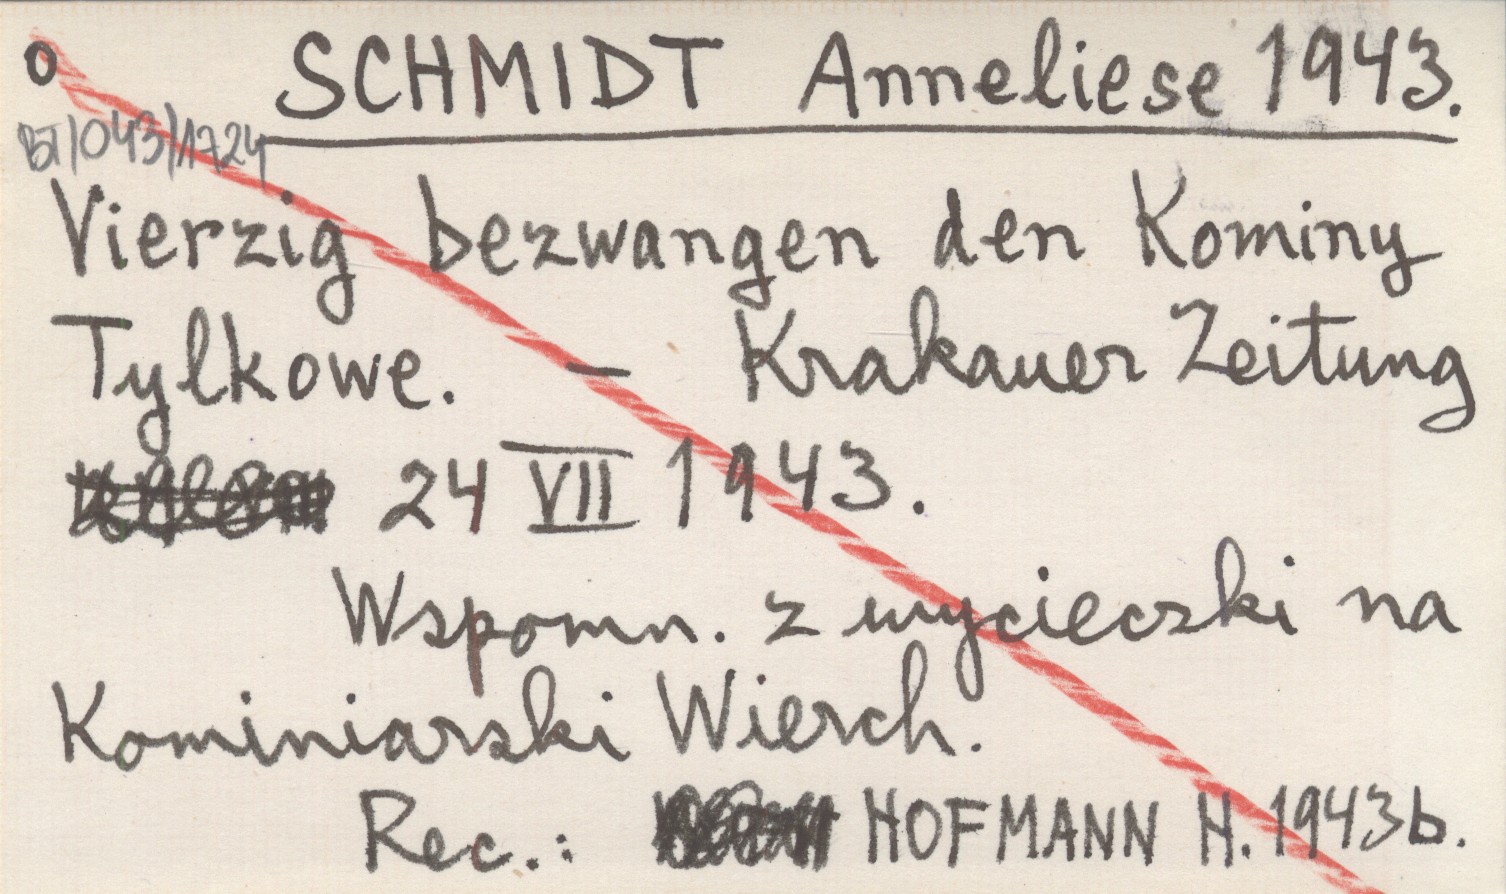 o SCHMIDT Anneliese 1943.
BT/043/1724
Vierzig bezwangen den Kominy
Tylkowe. — Krakauer Zeitung
24 VII 1943.
Wspomn. z wycieczki na
Kominiarski Wierch.
Rec.: HOFMANN H. 1943b.